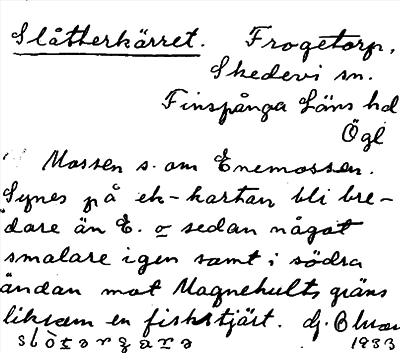 Slåtterkärret. Frogetorp,
Skedevi sn.
Finspånga Läns hd
Ögl
Mossen s. om Enemossen.
Synes på ek-kartan bli bre-
dare än E. o sedan något
smalare igen samt i södra
ändan mot Magnehults gräns
liksom en fiskstjärt. dj. Olsson
1933